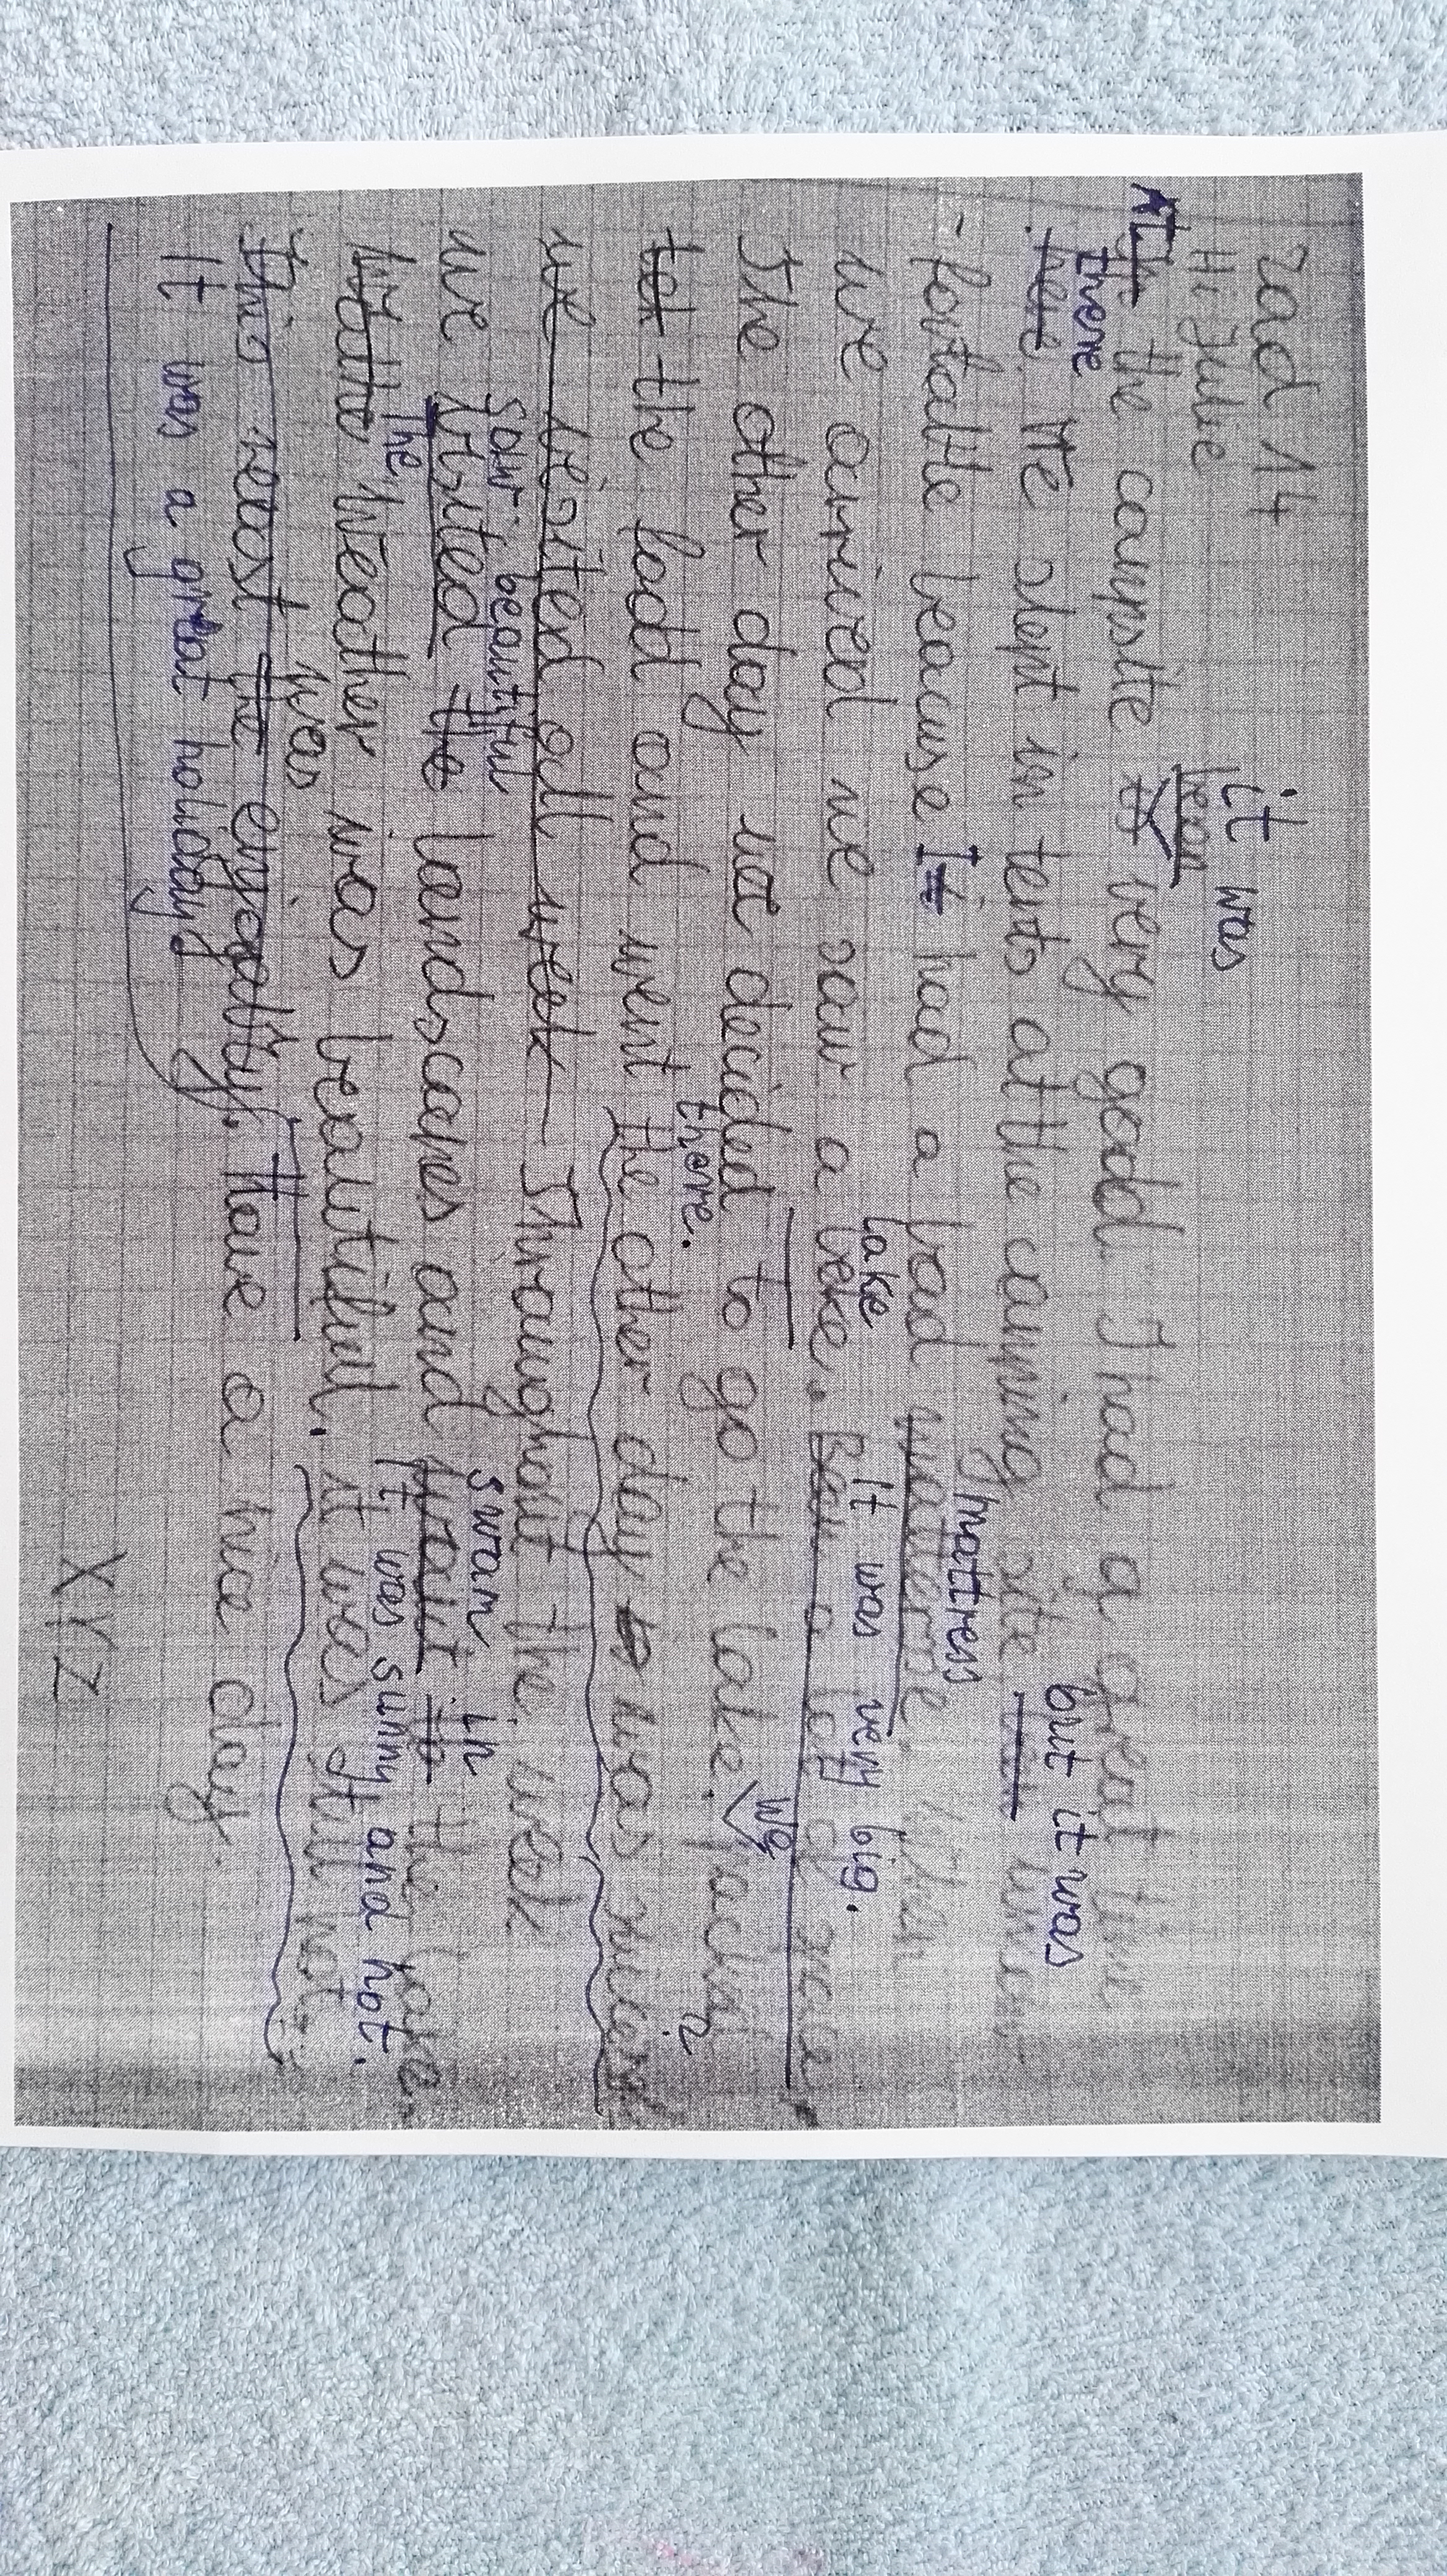 zad 14
it was
Hi Julie
been
At the campsite is very good. I had a great time
there but it was
here. We slept in tents at the camping site
mattress
-fortable because I had a bad
lake It was very big.
we arrived we saw a leke.
We
The other day we decided to go the lake. packed
there. a
the food and went the other day was
we visited all week Throughout the week
saw beautiful swam in
we visited the landscapes and the lake.
The It was sunny and hot.
Weather was beautiful. it was still hot
was
This rest the enjoy Have a nice day.
It was a great holidays
XYZ